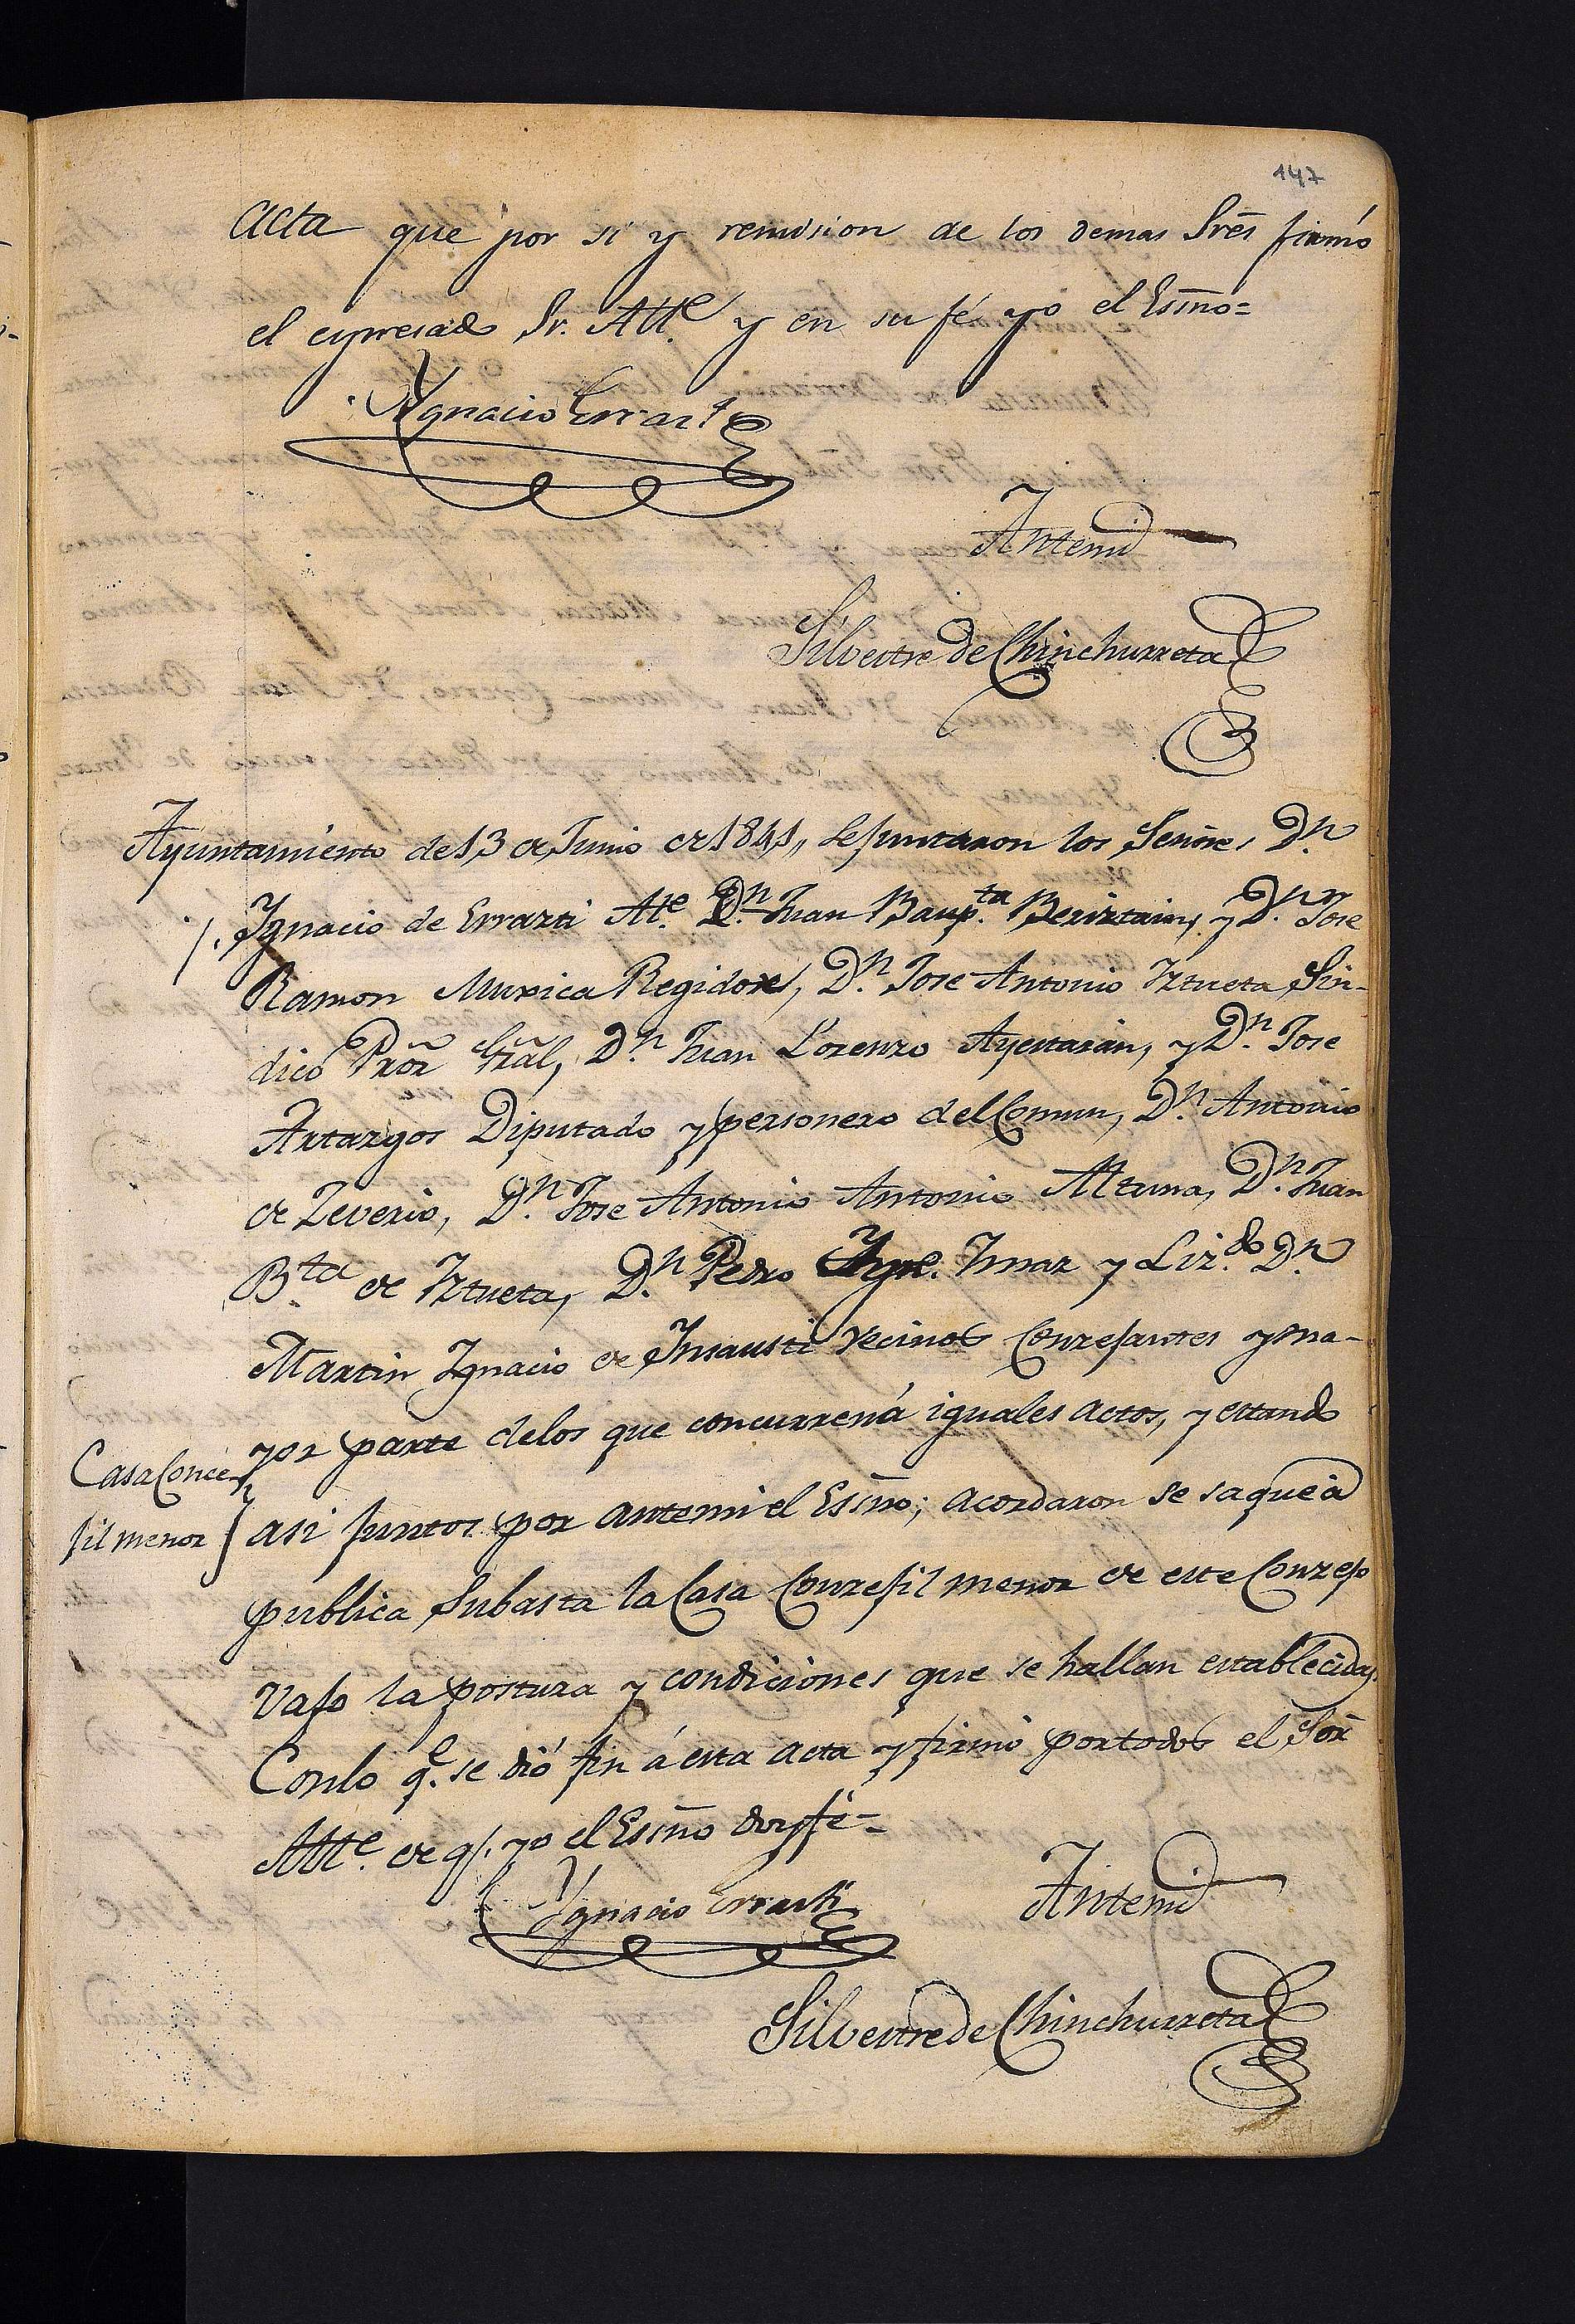 147
acta que por si y remision de los demas Srẽs firmó
el expresado Sr. Alte y en su fé yo el Esñno=
Ygnacio Errarti
Antemi
Silvestre de Chinchurreta
Ayuntamiento de 13 de Junio de 1841,, se juntaron los Señores Dn.
Ignacio de Errazti Ate. Dn. Juan Baupta. Beriztain, y Dn. Jose
Ramon Muxica Regidores, Dn. Jose Antonio Iztueta Sin-
dico Prõr Grãl, Dn. Juan Lorenzo Ayestarán, y Dn. Jose
Astargos Diputado y personero del Comun, Dn. Antonio
de Zeverio, Dn. Jose Antonio Antonio Altuna, Dn. Juan
Bta. de Iztueta, Dn. Pedro Ygno. Imaz y Lizdo. Dn.
Martin Ignacio de Insausti vecinos Conzejantes y ma-
yor parte delos que concurren á iguales actos, y estando
Casa Conce-
jil menor
asi juntos por antemi el Esñno; acordaron se saque á
publica Subasta la Casa Conzejil menor de este Conzejo
vajo la postura y condiciones que se hallan establecidas.
Conlo qe. se dió fin á esta acta y firmó portodos el Sõr
Alte. de q. yo el Esñno doy fé=
Ygnacio Errarti
Antemi
Silvestre de Chinchurreta